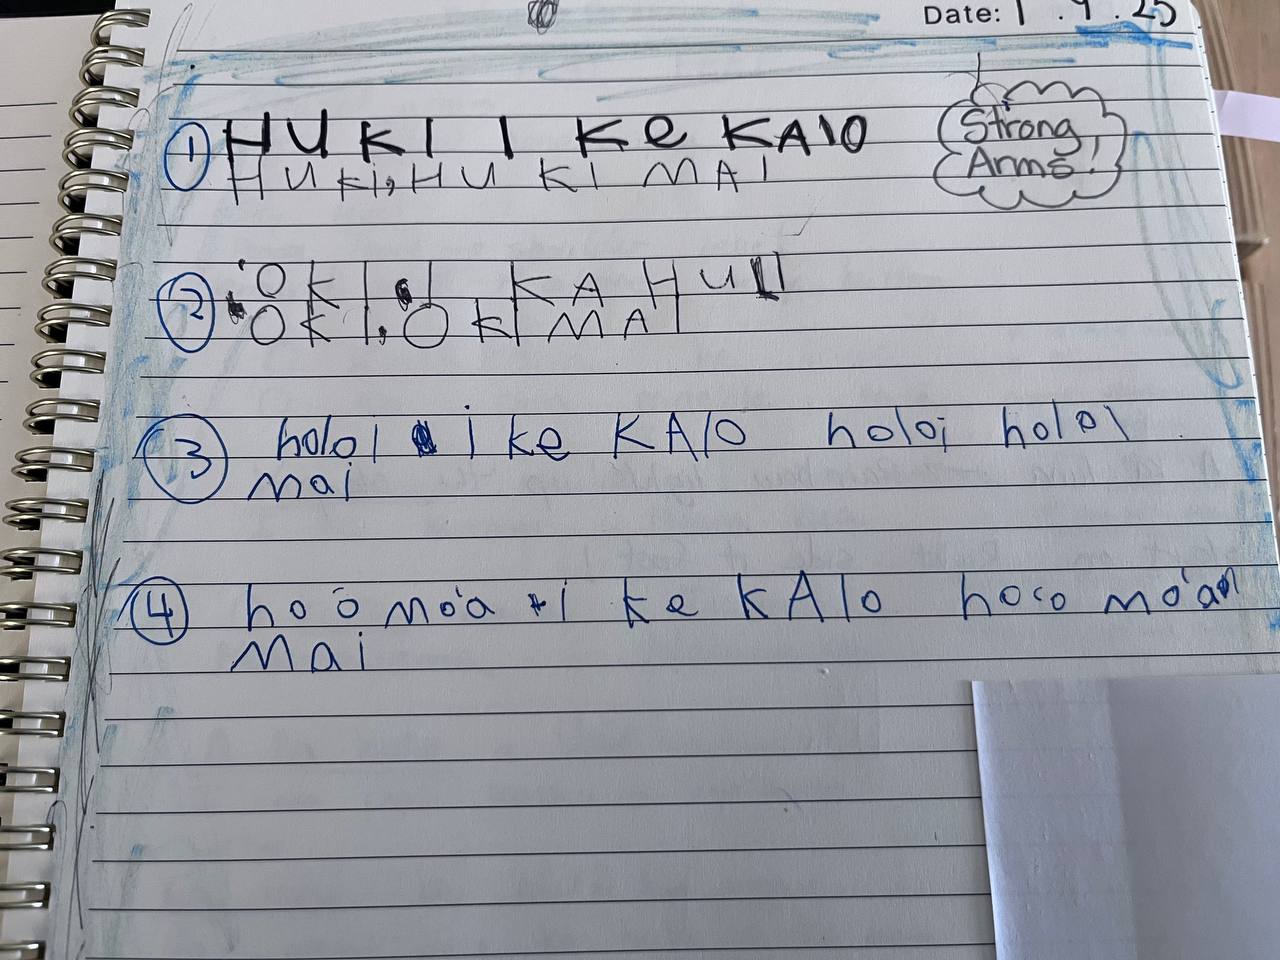 Date: 1.9.25
① HUKI I Ke KAlO
HUKi, HUKI MAI
Strong
Arms!
② 'OKI I KA HULI
'OKI, 'OKI MAI
③ holoi i ke KAlO holoi holoi
Mai
④ ho'o mo'a i ke KAlO ho'o mo'a
Mai